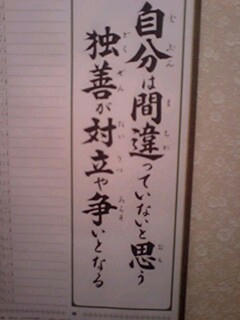 自分は間違っていないと思う
独善が対立や争いとなる